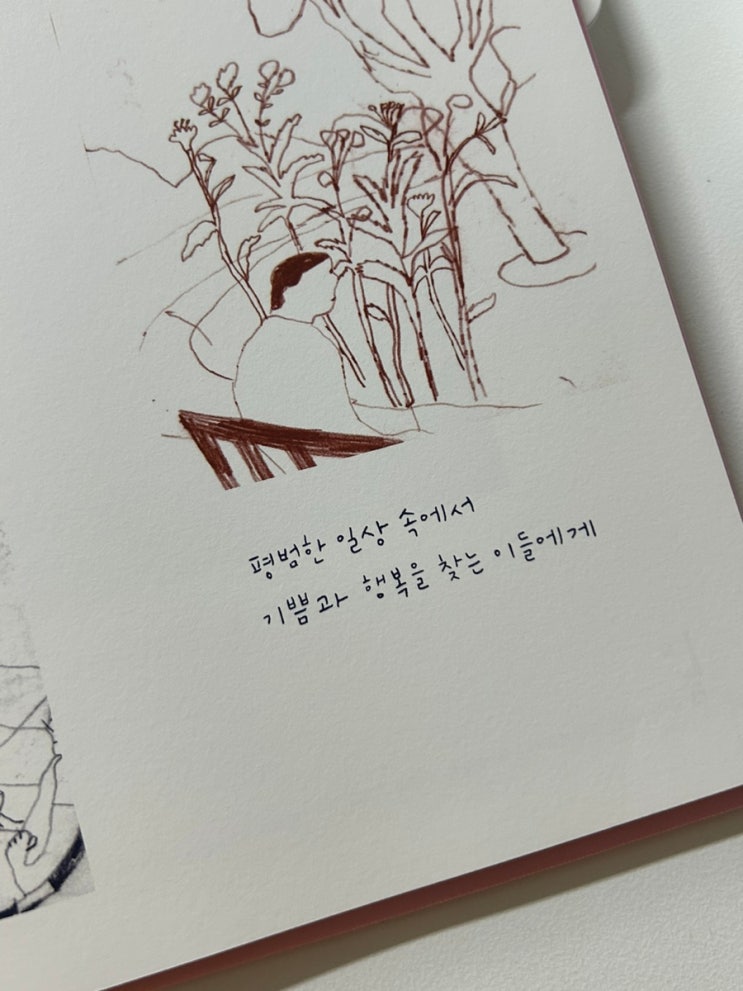 평범한 일상 속에서
기쁨과 행복을 찾는 이들에게